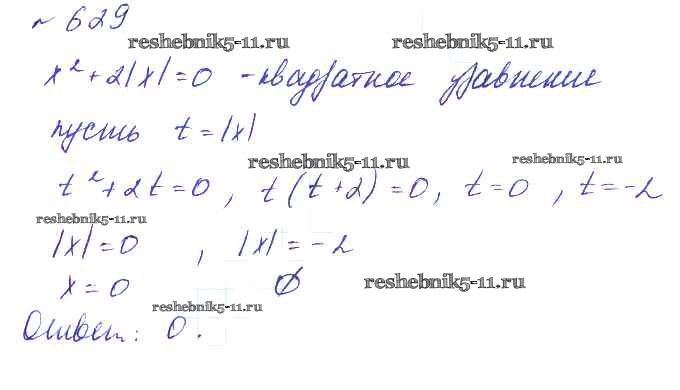 № 629
reshebnik5-11.ru reshebnik5-11.ru
x² + 2|x| = 0 - квадратное уравнение
пусть t = |x|
reshebnik5-11.ru reshebnik5-11.ru
t² + 2t = 0, t(t+2) = 0, t = 0, t = -2
reshebnik5-11.ru
|x| = 0, |x| = -2
x = 0 ∅ reshebnik5-11.ru
reshebnik5-11.ru
Ответ: 0.